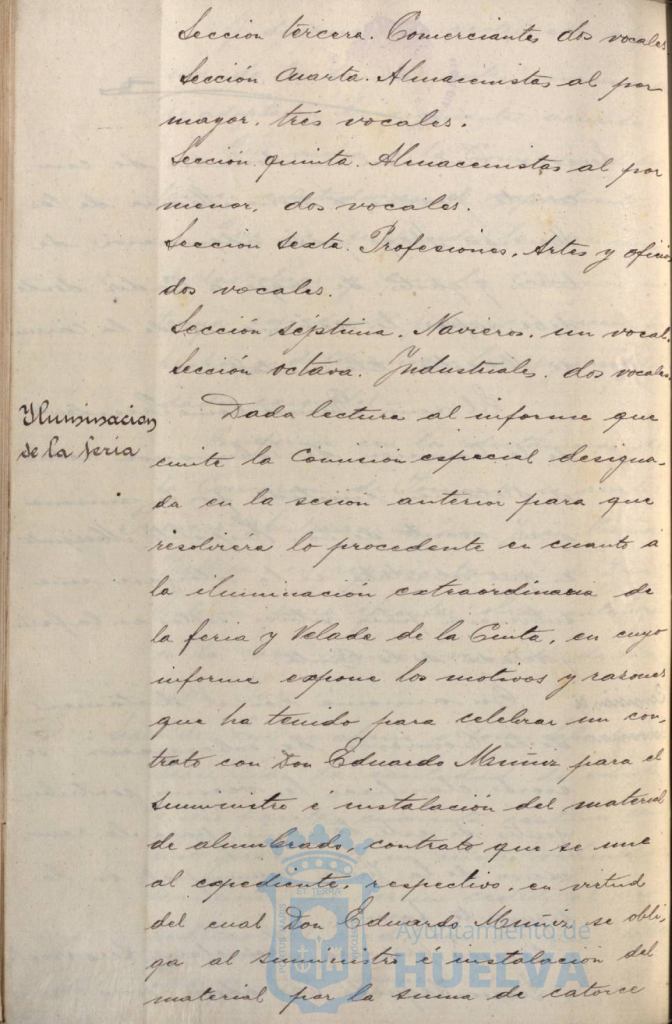 Sección tercera. Comerciantes dos vocales
Sección cuarta. Almacenistas al por
mayor, tres vocales.
Sección quinta. Almacenistas al por
menor, dos vocales.
Sección sexta. Profesiones, Artes y oficios
dos vocales.
Sección séptima. Navieros, un vocal.
Sección octava. Industriales. dos vocales.
Yluminacion
de la feria
Dada lectura al informe que
emite la Comisión especial designa-
da en la sesión anterior para que
resolviera lo procedente en cuanto á
la iluminación extraordinaria de
la feria y Velada de la Cinta, en cuyo
informe expone los motivos y razones
que ha tenido para celebrar un con-
trato con Don Eduardo Muñiz para el
suministro é instalación del material
de alumbrado, contrato que se une
al expediente, respectivo, en virtud
del cual Don Eduardo Muñiz se obli-
ga al suministro é instalación del
material por la suma de catorce
Ayuntamiento de
HUELVA